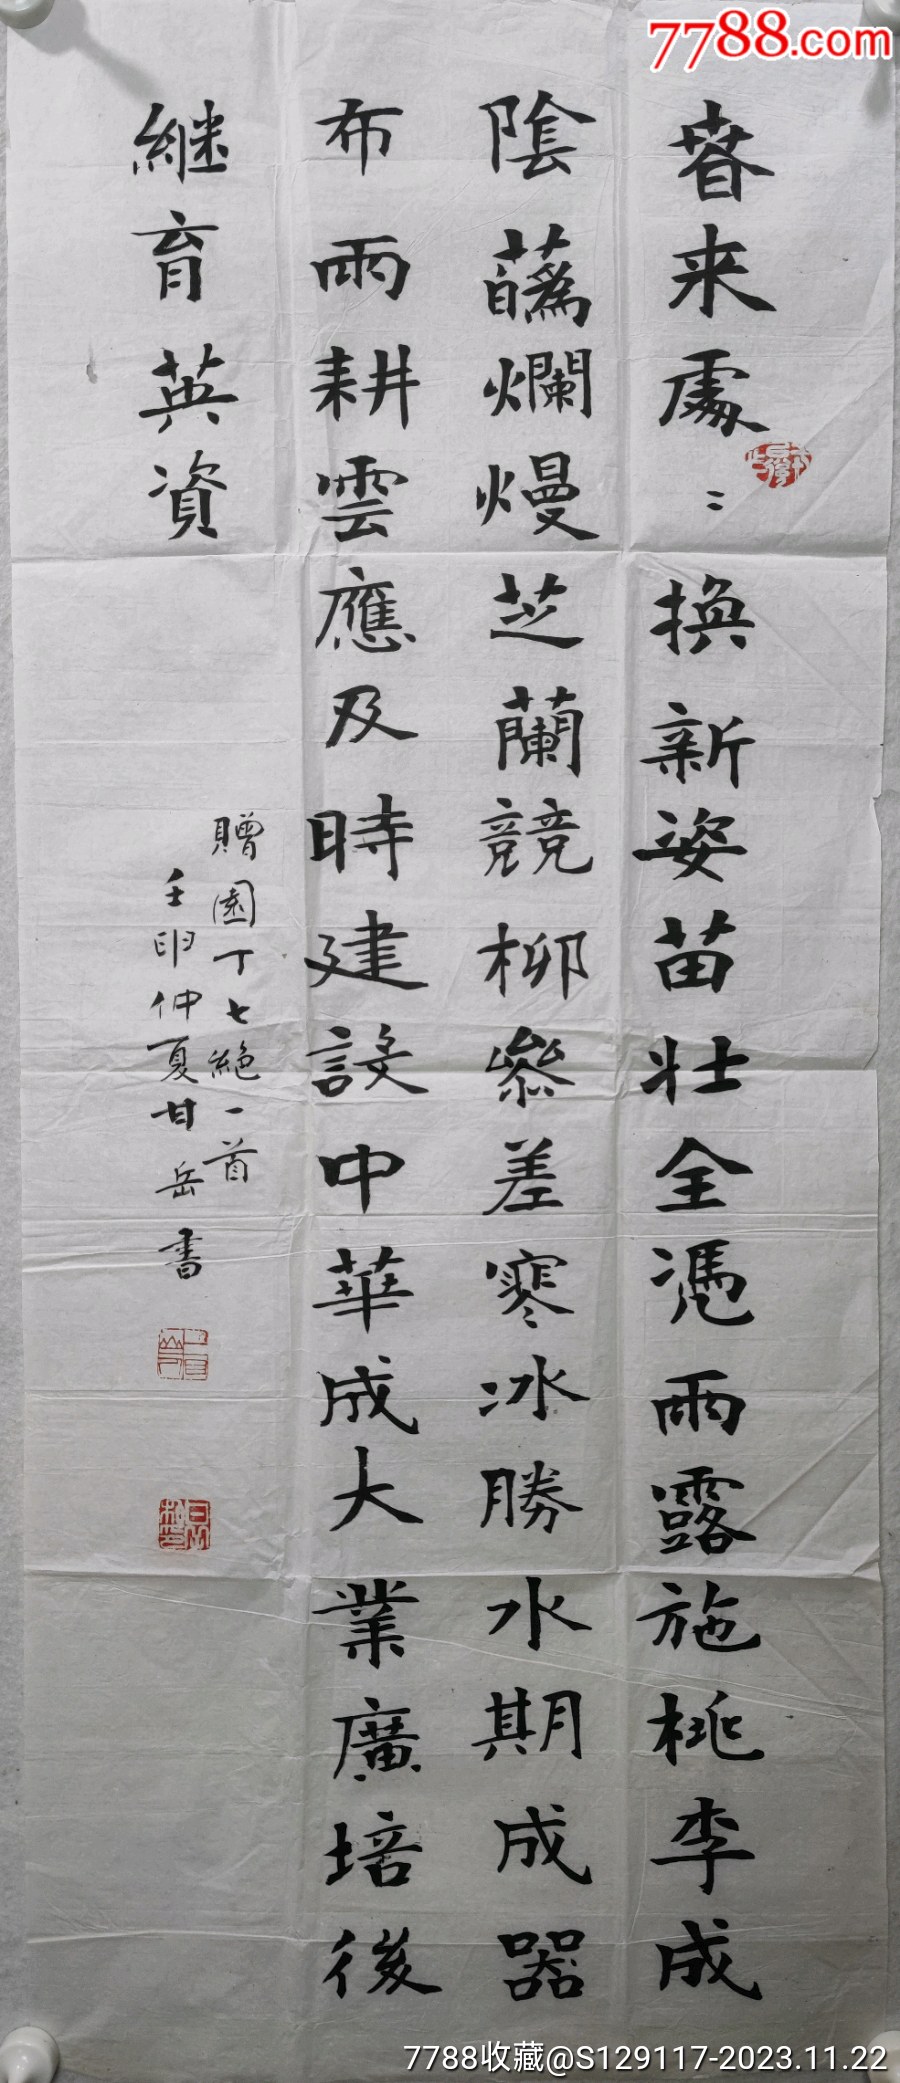 春来處〻換新姿苗壮全凴雨露施桃李成
陰蘤爛熳芝蘭競柳參差寒冰勝水期成器
布雨耕雲應及時建設中華成大業廣培後
継育英資
贈園丁七絕一首
壬卯仲夏甘岳書
7788.com
7788收藏@S129117-2023.11.22